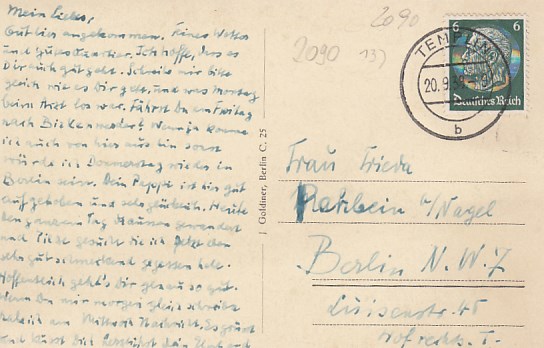 Mein Liebes,
Gut hier angekommen. Feines Wetter
und gutes Quartier. Ich hoffe, dass es
Dir auch gut geht. Schreib mir bitte
gleich wie es Dir geht, und was Montag
beim Arzt los war. Fährst Du am Freitag
nach Birkenwerder? Wenn ja komme
ich auch von hier aus hin sonst
würde ich Donnerstag wieder in
Berlin sein. Dein Peppi ist hier gut
aufgehoben und sehr glücklich. Heute
den ganzen Tag draussen gewandert
und Pilze gesucht die ich jetzt den
sehr gut schmeckend gegessen habe.
Hoffentlich geht's Dir genau so gut.
Wenn Du mir morgen gleich schreibst
ich am Mittwoch Nachricht. Es grüsst
und küsst Dich herzlichst Dein
2090
2090
6 6
Deutsches Reich
TEMPLIN
20.9.
b
J. Goldiner, Berlin C. 25
Frau Frieda
Rehbein b/Nagel
Berlin N.W.7
Luisenstr. 45
Hof rechts I.